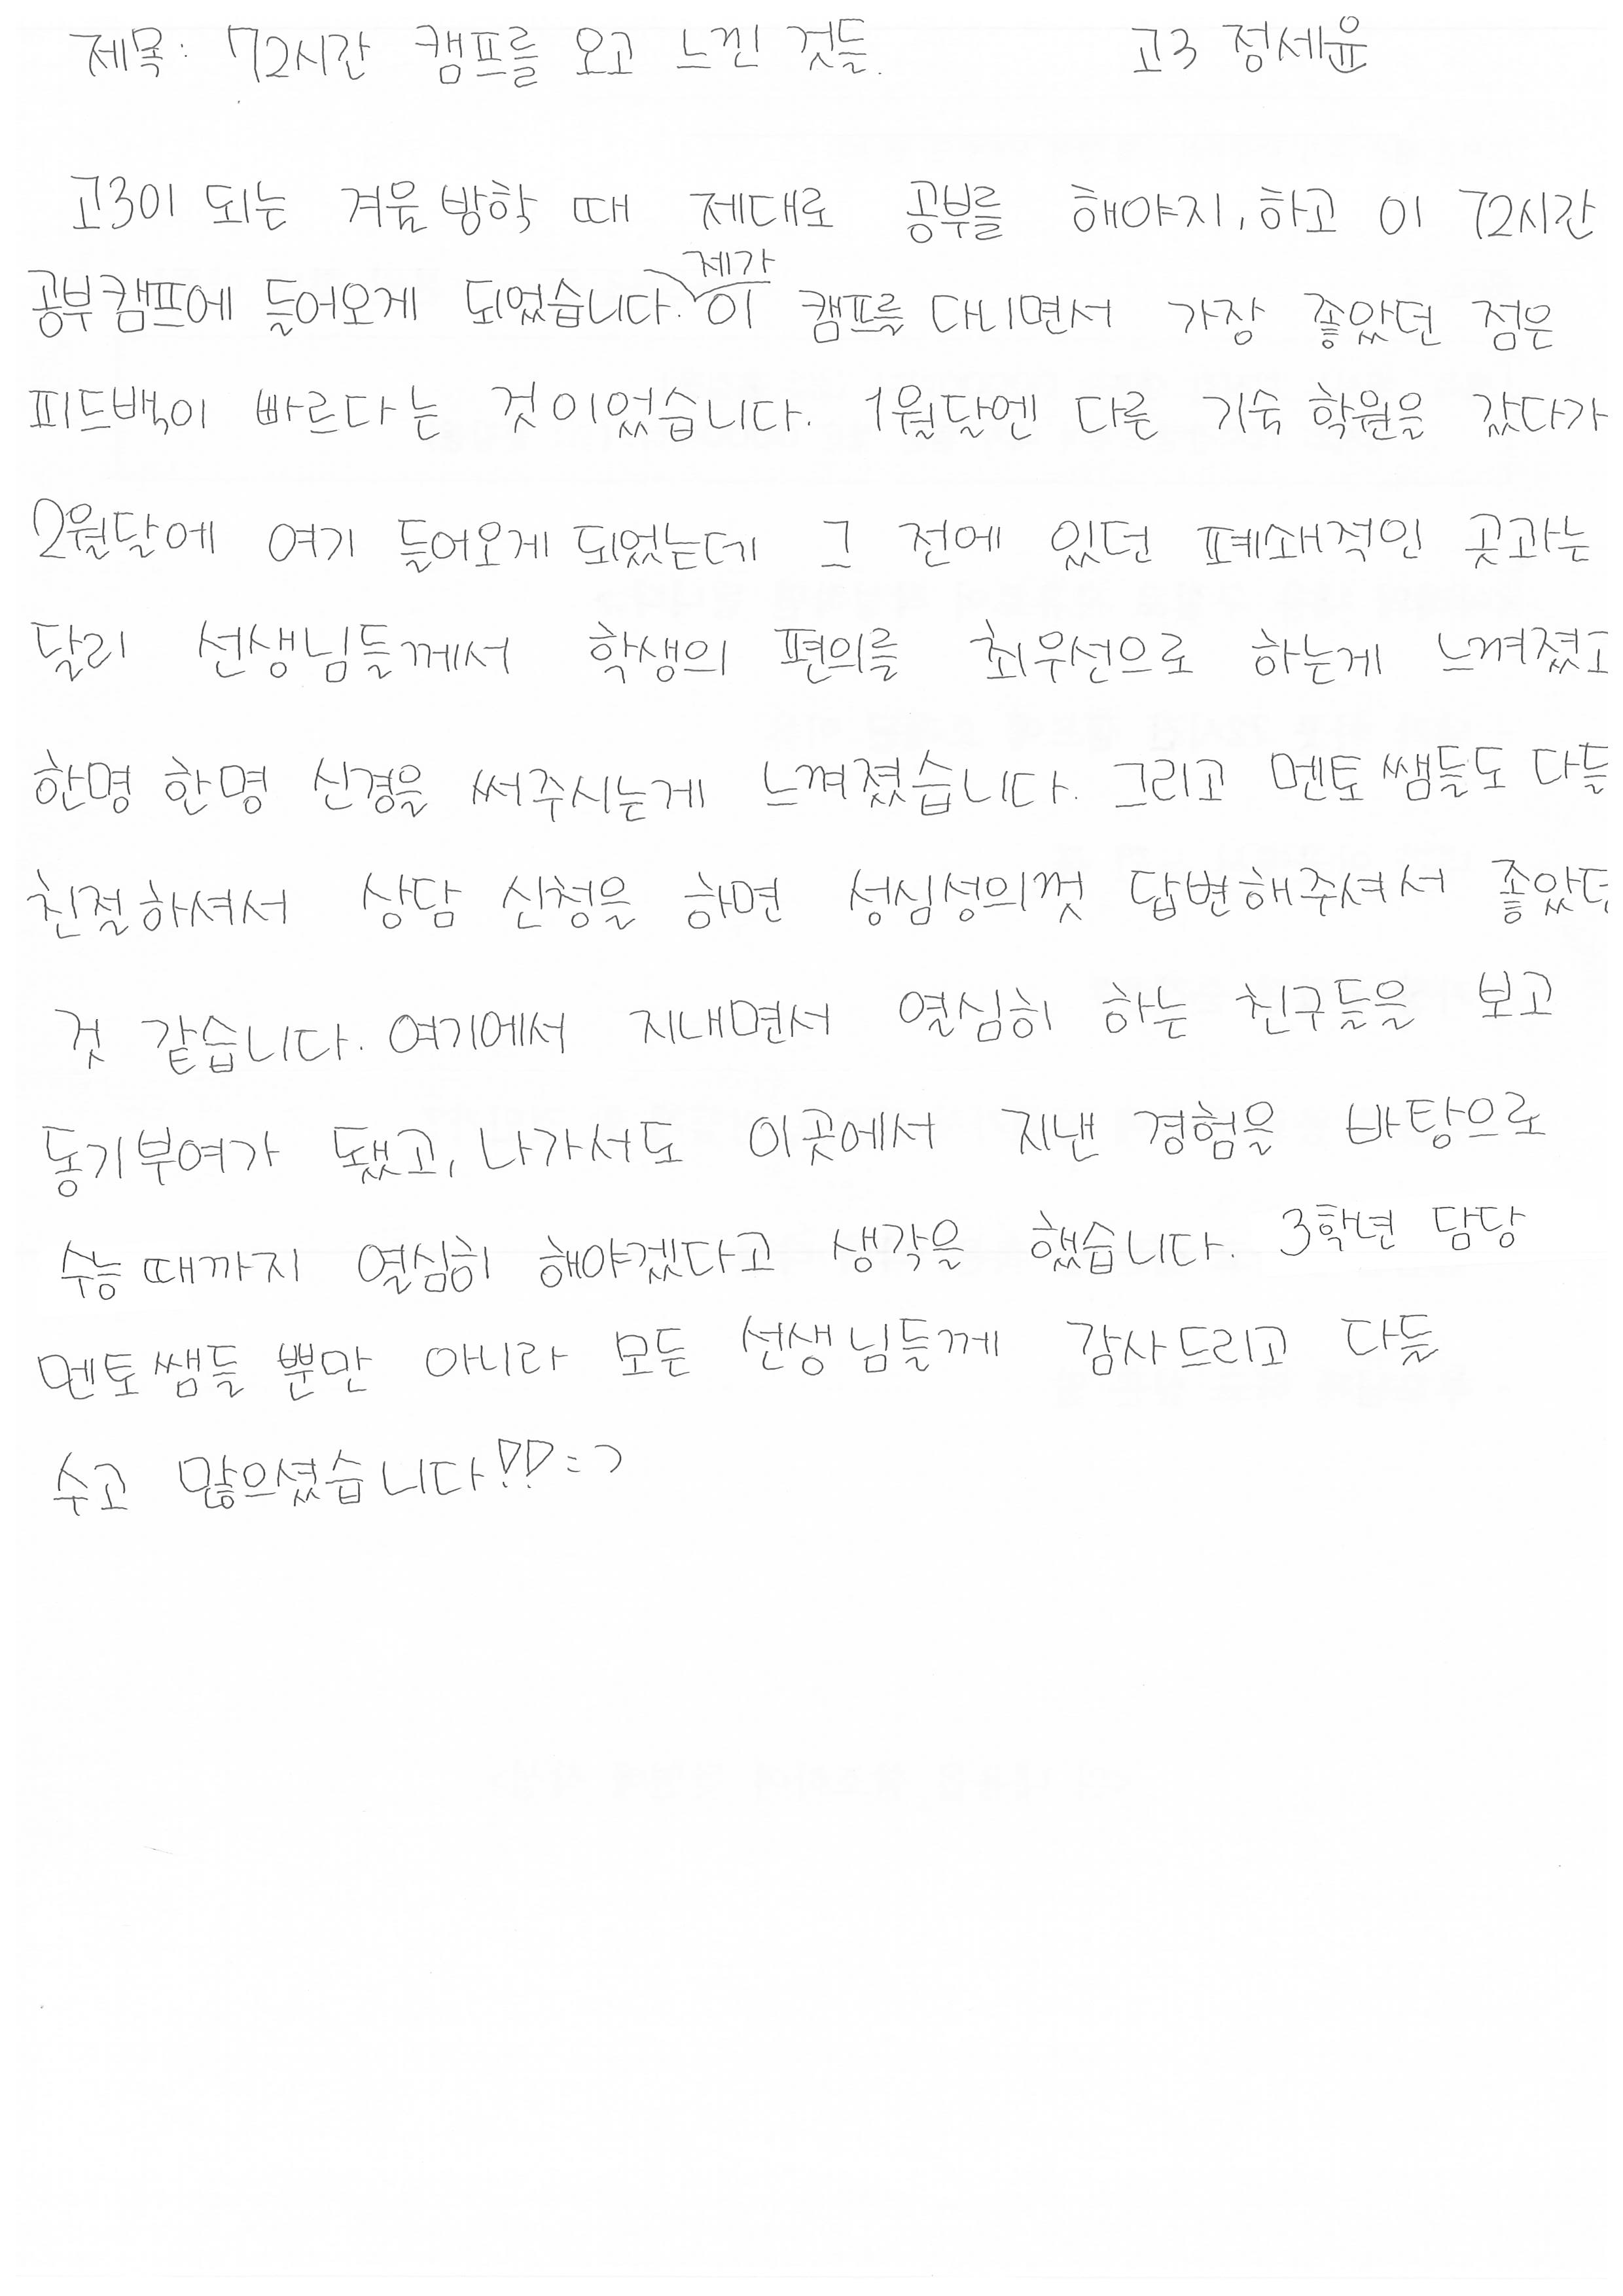 제목: 72시간 캠프를 오고 느낀 것들.
고3 정세윤
고3이 되는 겨울방학 때 제대로 공부를 해야지, 하고 이 72시간
공부캠프에 들어오게 되었습니다. 제가 이 캠프를 다니면서 가장 좋았던 점은
피드백이 빠르다는 것이었습니다. 1월달엔 다른 기숙 학원을 갔다가
2월달에 여기 들어오게 되었는데 그 전에 있던 폐쇄적인 곳과는
달리 선생님들께서 학생의 편의를 최우선으로 하는게 느껴졌고
한명 한명 신경을 써주시는게 느껴졌습니다. 그리고 멘토쌤들도 다들
친절하셔서 상담 신청을 하면 성심성의껏 답변해주셔서 좋았던
것 같습니다. 여기에서 지내면서 열심히 하는 친구들을 보고
동기부여가 됐고, 나가서도 이곳에서 지낸 경험을 바탕으로
수능 때까지 열심히 해야겠다고 생각을 했습니다. 3학년 담당
멘토쌤들 뿐만 아니라 모든 선생님들께 감사드리고 다들
수고 많으셨습니다!! =)